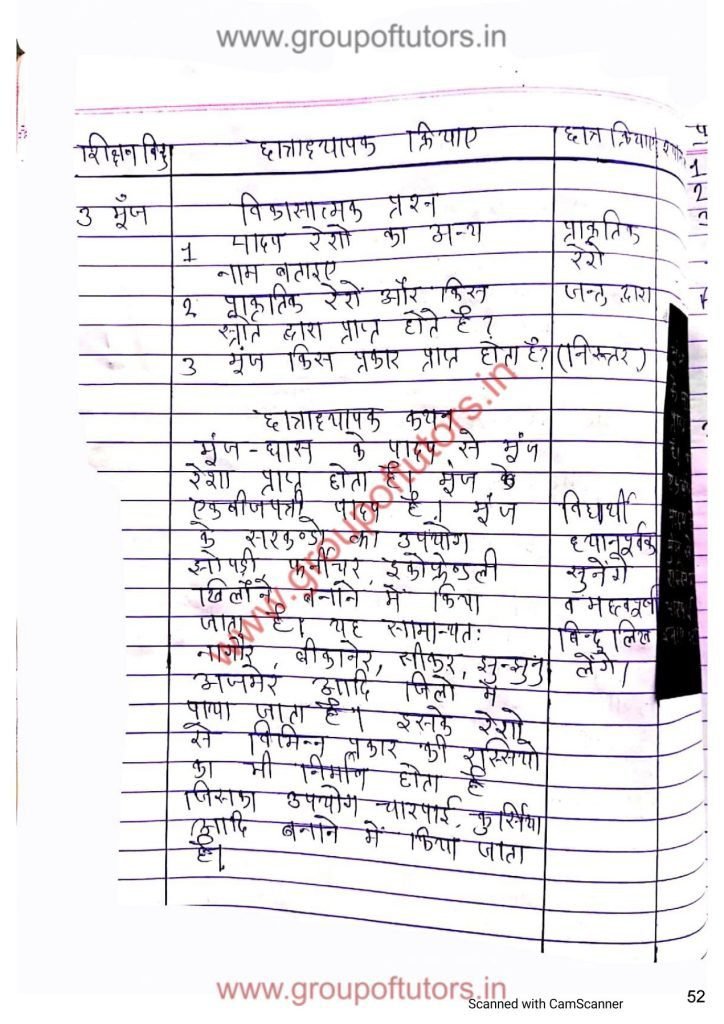 www.groupoftutors.in
शिक्षन बिन्दु छात्राध्यापक क्रियाए छात्र क्रियाए
3 मूँज विकासात्मक प्रश्न
1 पादप रेशो का अन्य प्राकृतिक
नाम बताइए रेशे
2 प्राकृतिक रेशें और किस जन्तु द्वारा
स्त्रोत द्वारा प्राप्त होते है?
3 मूंज किस प्रकार प्राप्त होता है? (निरूत्तर)
छात्राध्यापक कथन
मूंज-घास के पादप से मूंज
रेशा प्राप्त होता है। मूंज के
एकबीजपत्री पादप है। मूंज विद्यार्थी
के सरकण्डो का उपयोग ध्यानपूर्वक
झोपड़ी फर्नीचर, इकोफ्रेण्डली सुनेंगे
खिलौने बनाने में किया व महत्वपूर्ण
जाता है। यह सामान्यतः बिन्दु लिख
नागौर, बीकानेर, सीकर, झुन्झुनु लेंगे।
अजमेर आदि जिलो में
पाया जाता है। इसके रेशो
से विभिन्न प्रकार की रस्सियो
का भी निर्माण होता है
जिसका उपयोग चारपाई, कुर्सिया
आदि बनाने में किया जाता
है।
www.groupoftutors.in
www.groupoftutors.in
Scanned with CamScanner
52